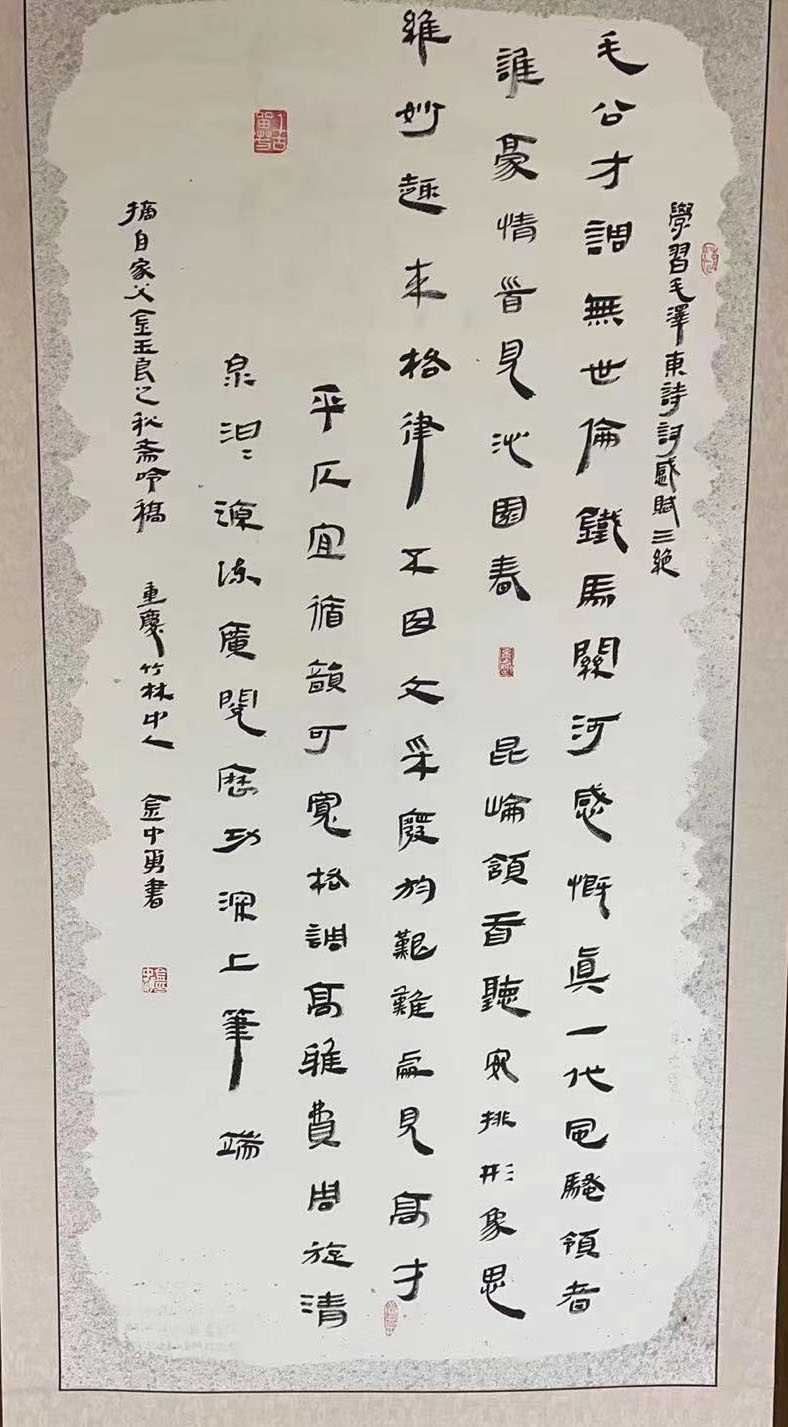 學習毛澤東詩詞感賦三絕
毛公才調無世倫鐵馬關河感慨眞一代風騷領者
誰豪情首見沁園春 昆崙頷首聽安排形象思
維妙趣來格律不因文采廢於艱難處見高才
平仄宜循韻可寬格調高雅費周旋清
泉汩〻源流廣閱歷功深上筆端
摘自家父金玉良之秋斋吟稿 重慶竹林中人 金中勇書